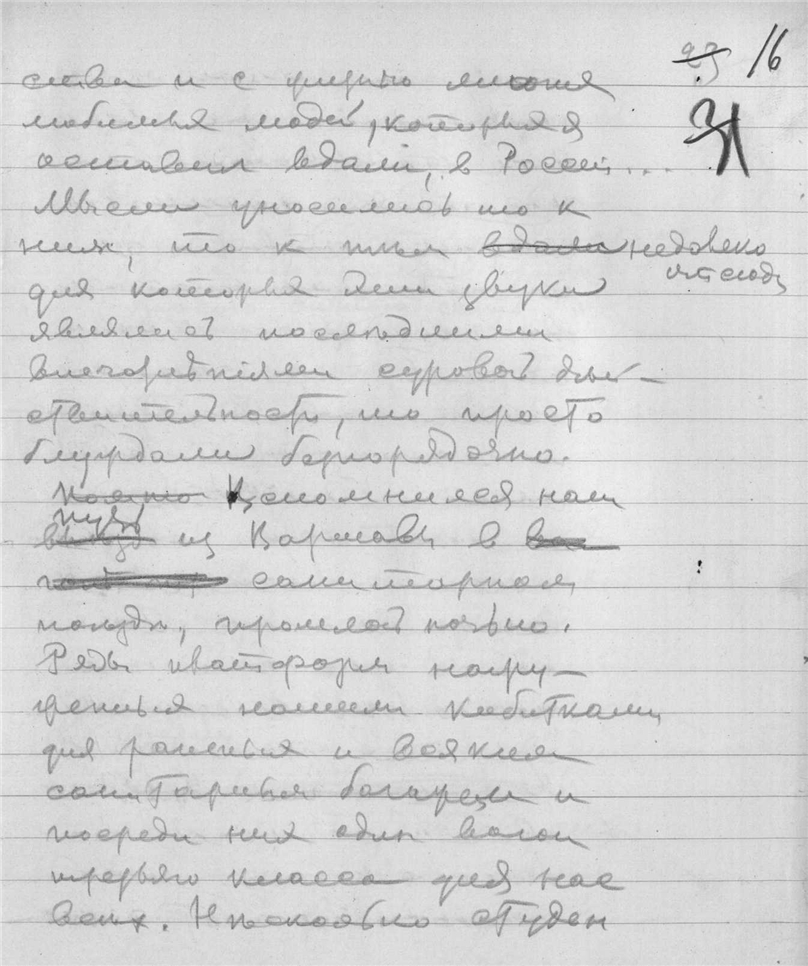 16
23
31
ства и с
любимыя людей, которыя я
оставил вдали, в России...
Мысли уносились то к
ним, то к тем вдали недалеко
отсюда
для которых эти звуки
являлись последними
впечатлениями суровой дей-
ствительности, то просто
блуждали безпорядочно.
Вспомнился наш
путь
из Варшавы в
санитарном
поезде, прошлой ночью.
Ряды платформ нагру-
женных нашими кибитками
для раненых и всяким
санитарным багажем и
посреди них один вагон
третьяго класса для нас
всех. Несколько студен